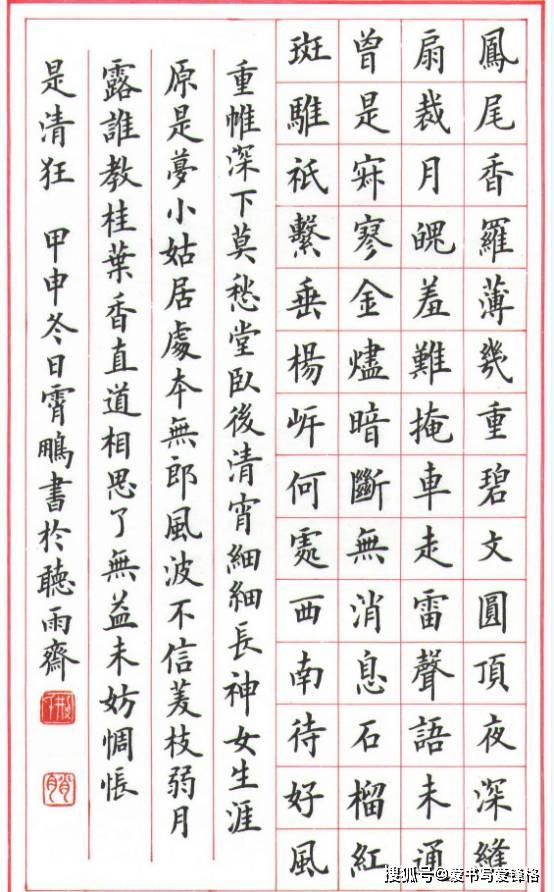 鳳尾香羅薄幾重碧文圓頂夜深縫
扇裁月魄羞難掩車走雷聲語未通
曾是寂寥金燼暗斷無消息石榴紅
斑騅祇繫垂楊岸何處西南待好風
重帷深下莫愁堂臥後清宵細細長神女生涯
原是夢小姑居處本無郎風波不信菱枝弱月
露誰教桂葉香直道相思了無益未妨惆悵
是清狂 甲申冬日霄鵬書於聽雨齋
搜狐号@爱书写爱锋格